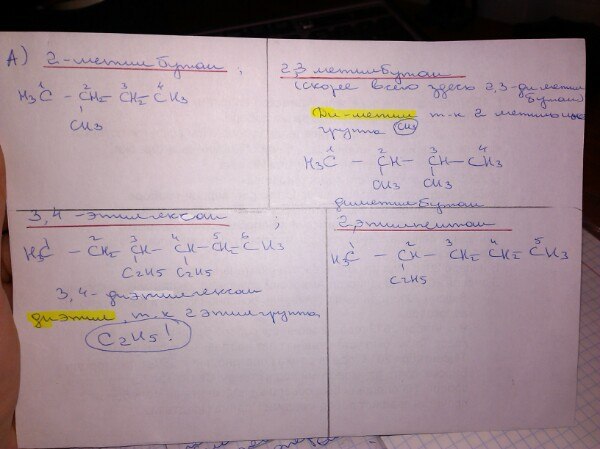 А) 2-метилбутан ;
1 2 3 4
H3C - CH2 - CH2 - CH3
CH3
2,3 метилбутан
(скорее всего здесь 2,3-диметил
бутан)
Ди-метил т-к 2 метильные
группа CH3
1 2 3 4
H3C - CH - CH - CH3
CH3 CH3
диметилбутан
3,4-этилгексан ;
1 2 3 4 5 6
H3C - CH2 - CH - CH - CH2 - CH3
C2H5 C2H5
3,4-диэтилгексан
диэтил, т.к 2 этилгруппа
C2H5!
2,этилпентан
1 2 3 4 5
H3C - CH - CH2 - CH2 - CH3
C2H5